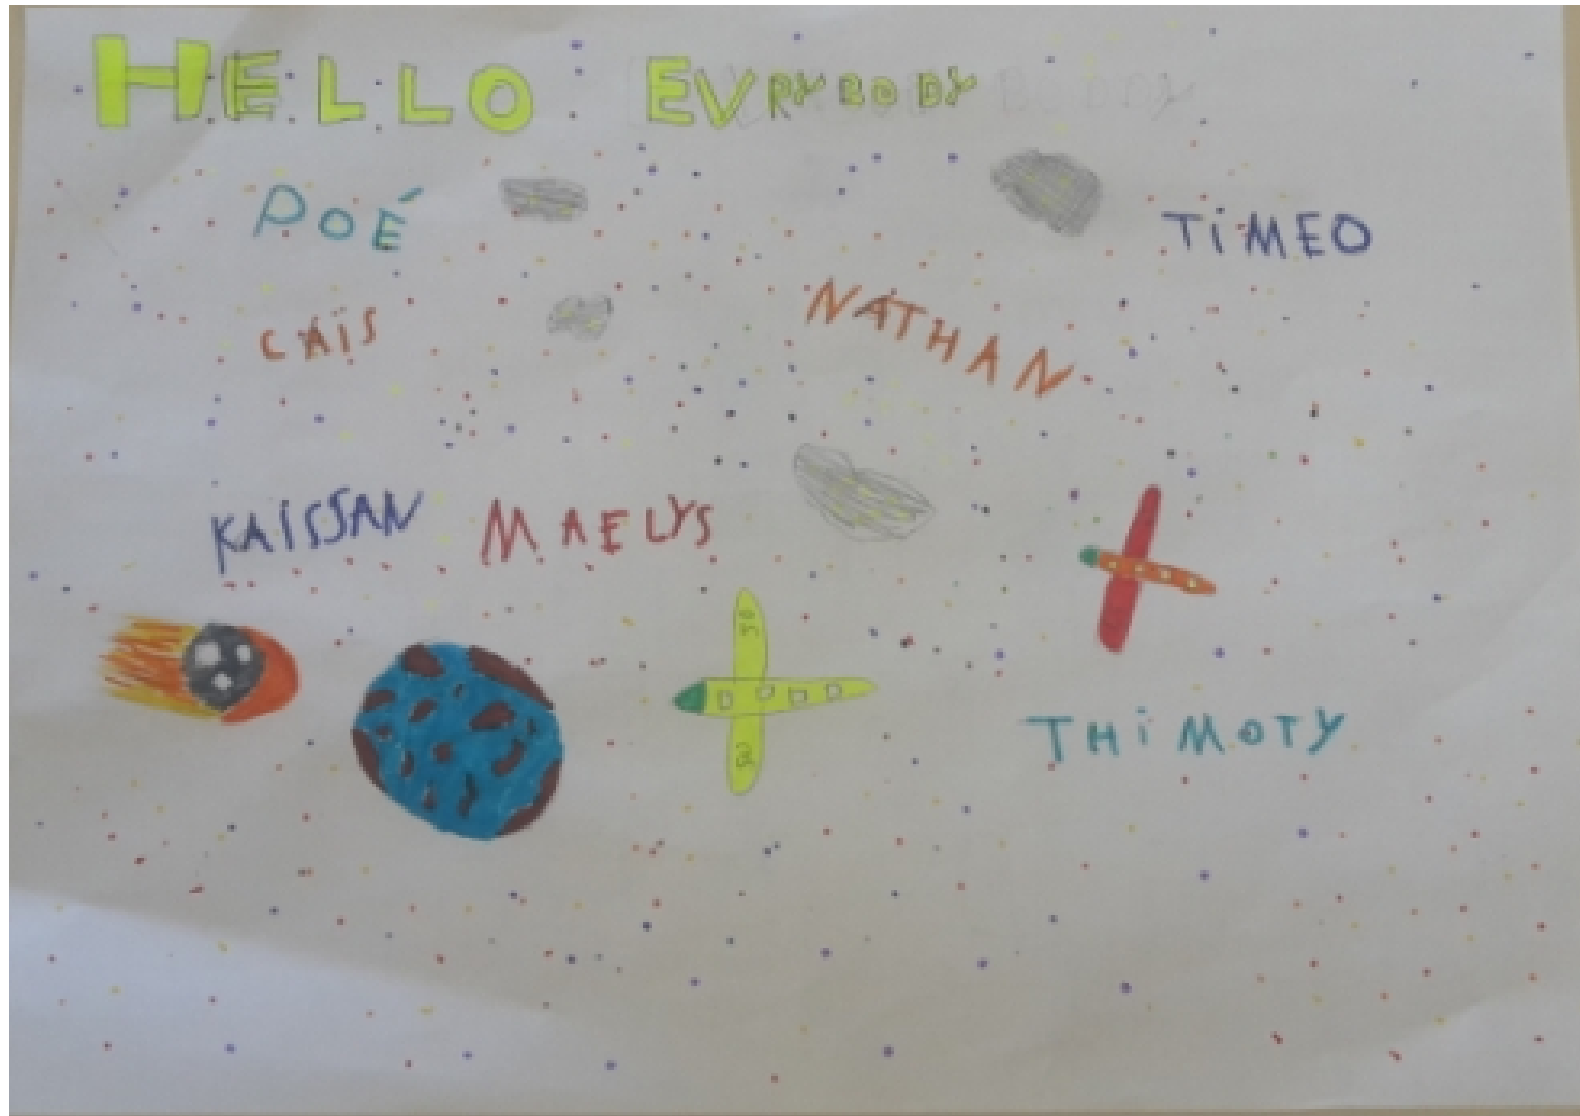 HELLO EVRYBODY
POÉ
TiMEO
CAÏS
NATHAN
KAiSSAN MAELYS
THiMOTY